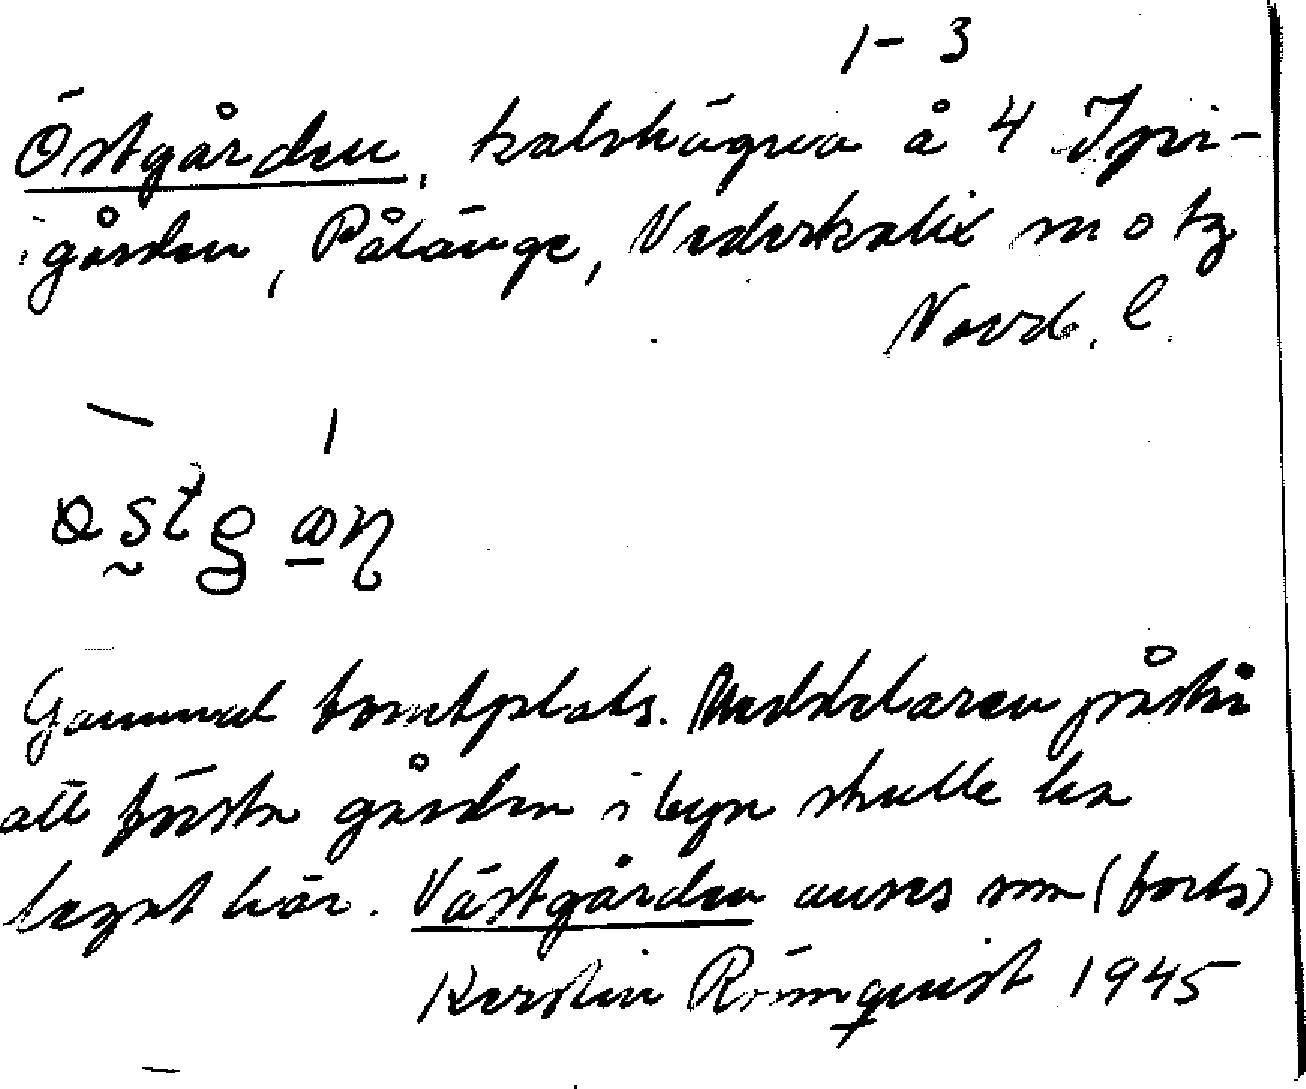 1-3
Östgården, kalvhägna å 4 Ipir-
gården, Pålänge, Nederkalix
Norrb. l.
Gammal tomtplats. Meddelaren påstår
att första gården i byn skulle ha
legat här. Västgården anses som (forts)
Kerstin Rönnquist 1945